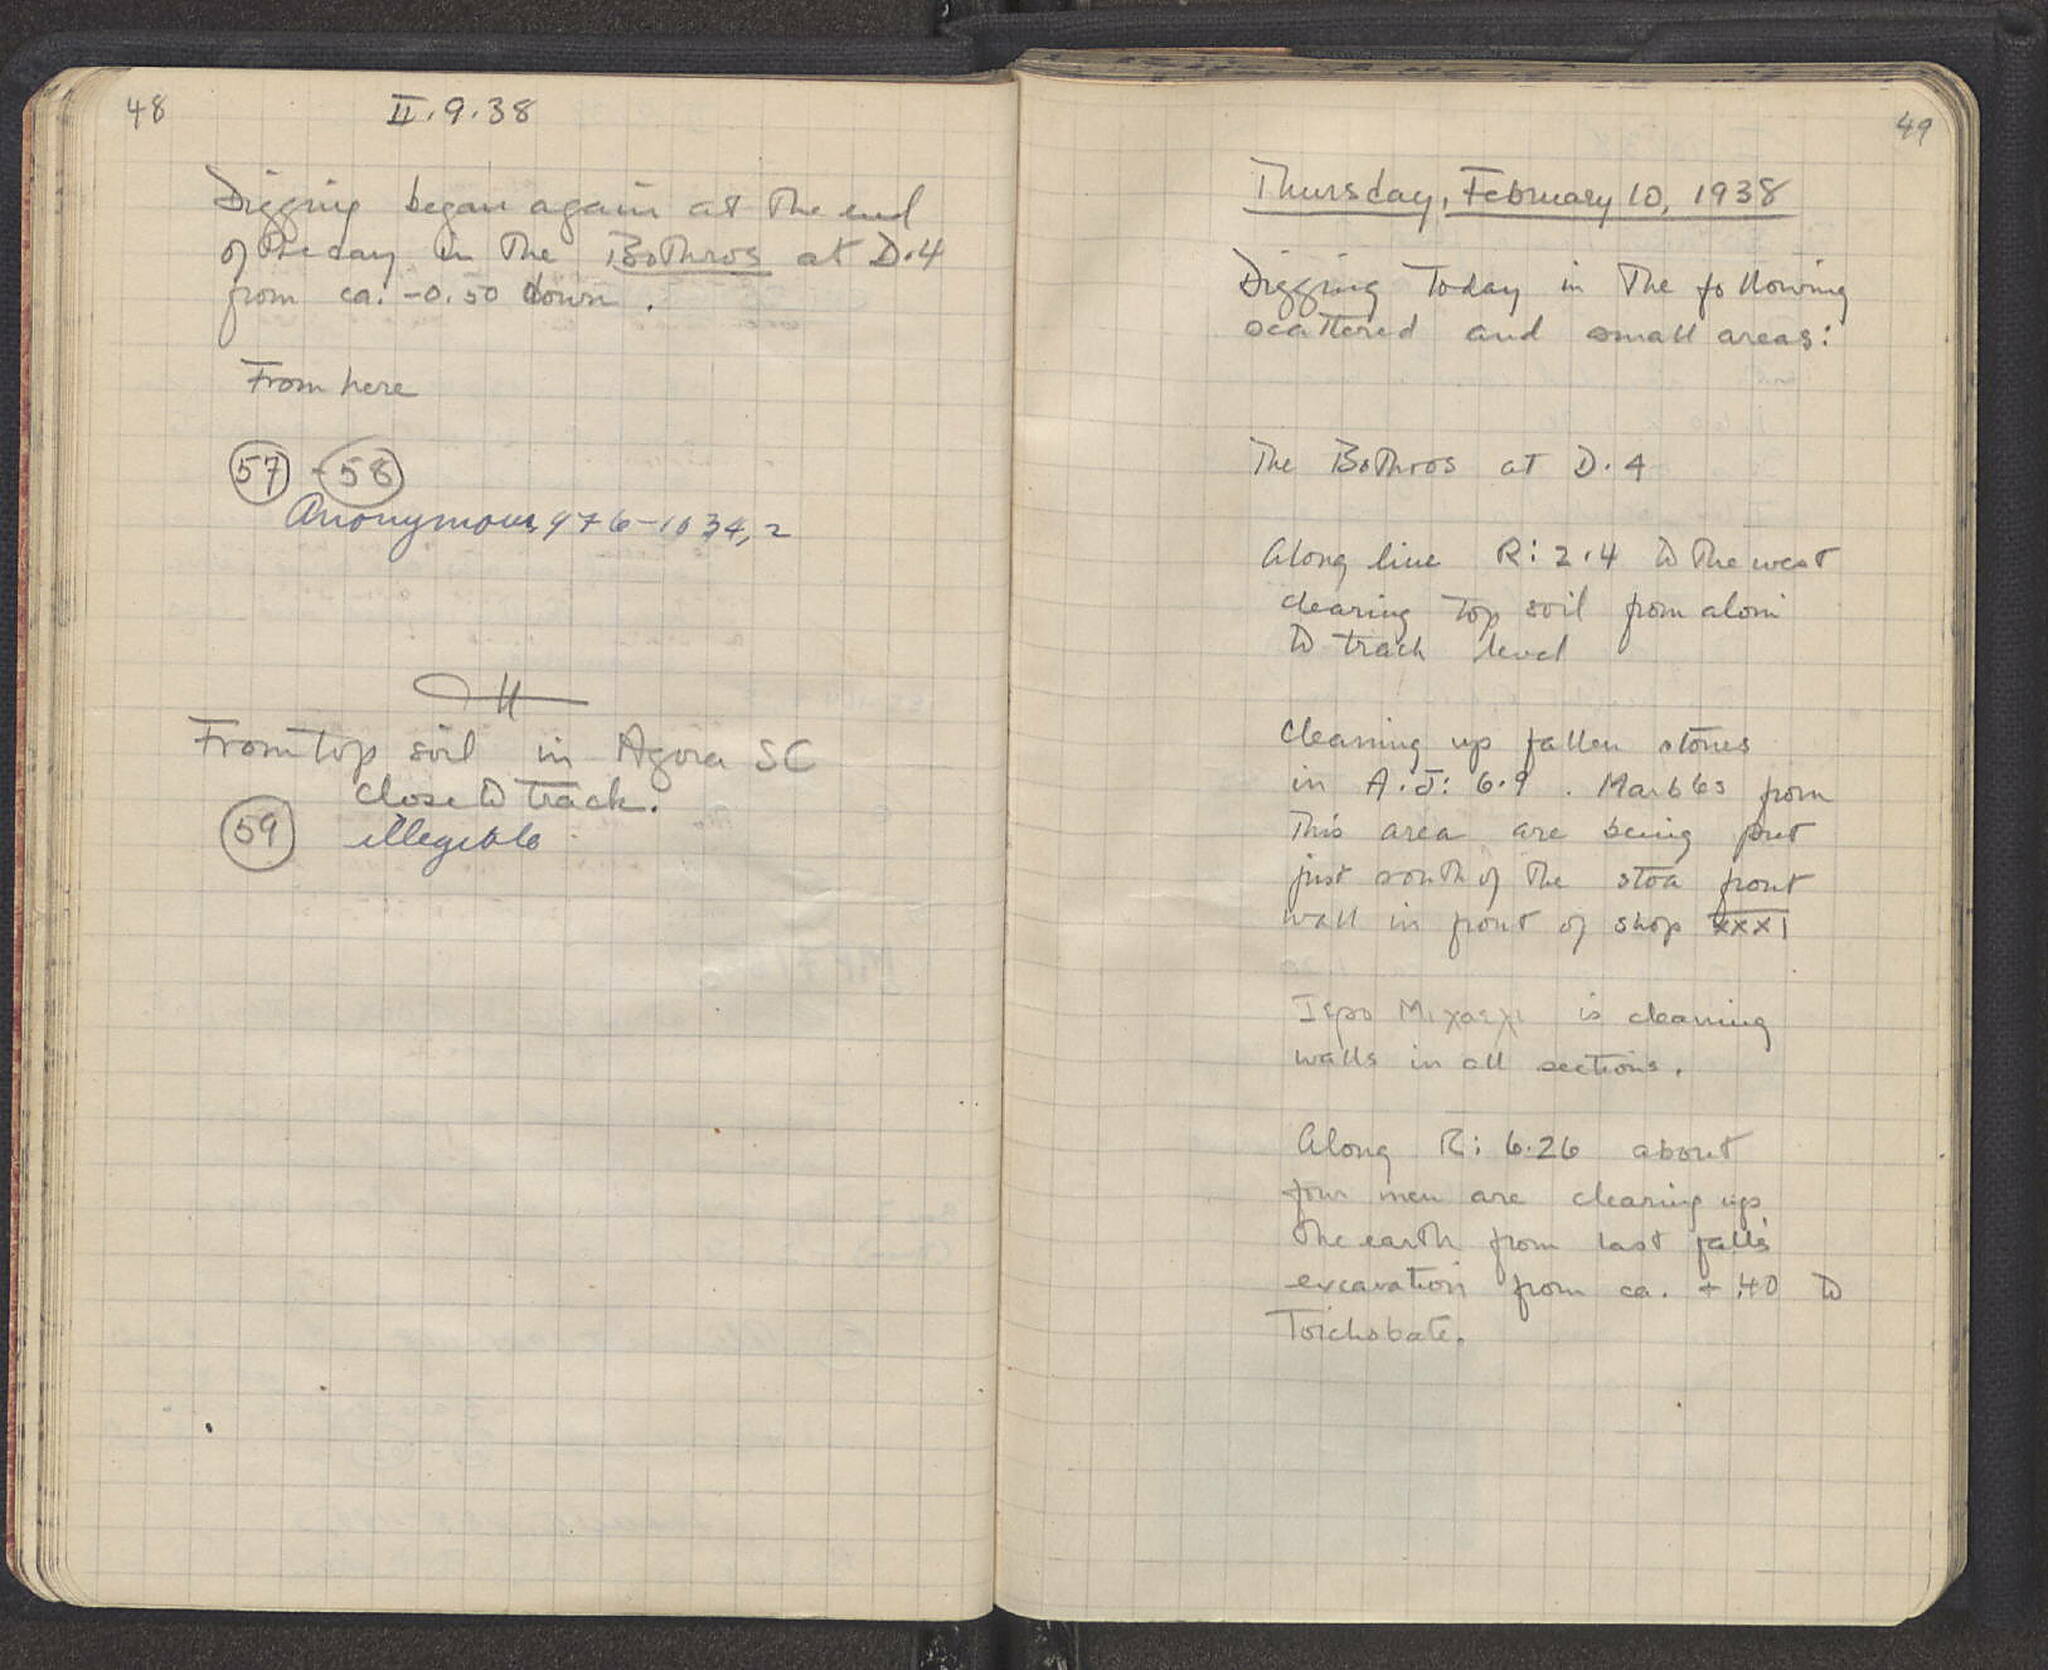 48
II.9.38
Digging began again at the end
of the day in the Bothros at D.4
from ca. -0.50 down.
From here
57 - 58
Anonymous, 976-1034, 2
From top soil in Agora SC
close to track.
59 illegible
49
Thursday, February 10, 1938
Digging Today in The following
scattered and small areas:
The Bothros at D.4
Along line R: 2.4 to the west
clearing top soil from aloni
to track level
Cleaning up fallen stones
in A.J: 6.9. Marbles from
This area are being put
just south of The stoa front
wall in front of shop XXXI
Ιερο Μιχαελι is cleaning
walls in all sections.
Along R: 6.26 about
four men are clearing up
the earth from last fall's
excavation from ca. + .40 to
Toichobate.